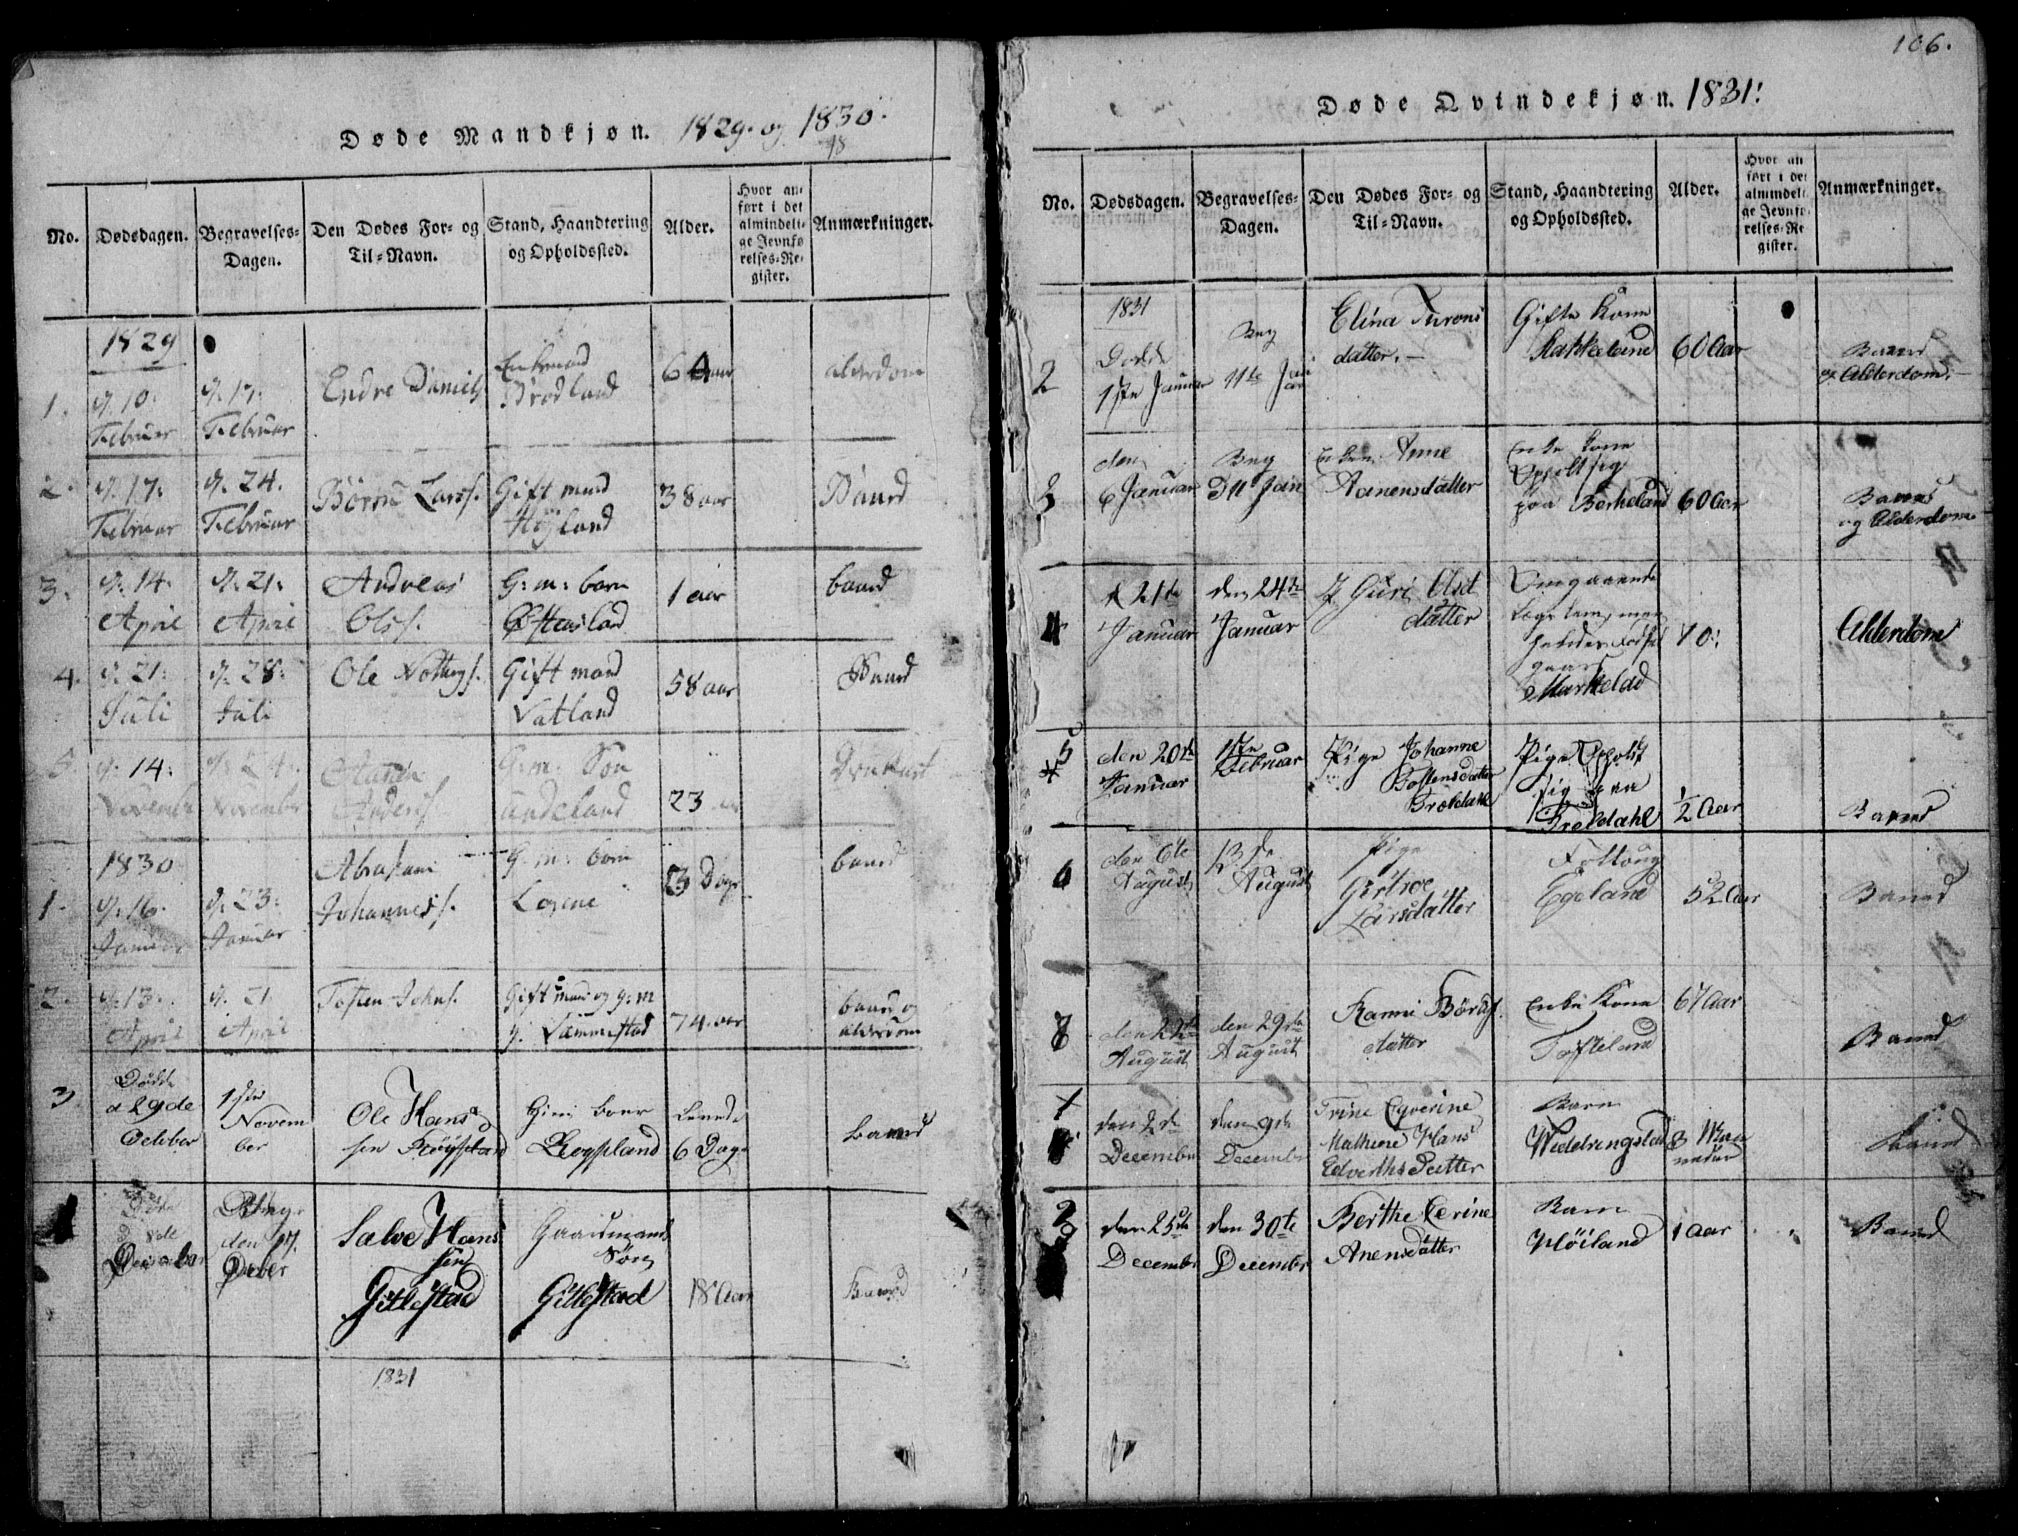 Døde Mandkjøn. 1829. og 1830.
98
No.
Dødsdagen.
Begravelses-
Dagen.
Den Dødes For- og
Til-Navn.
Stand, Haandtering
og Opholdssted.
Alder.
Hvor an-
ført i det
almindeli-
ge Jevnfø
relses-Re-
gister.
Anmærkninger.
1829
1.
d. 10.
Februar
d. 17.
Februar
Endre Daniels
Enkemand
Brødland
alderdom
2.
d. 17.
Februar
d. 24.
Februar
Börni Larss.
Gift mand
Höjland
38 aar
Baand
3.
d. 14.
April
d. 21.
April
Andreas
Olss.
G: m: barn
1 aar
baand
4.
d. 21.
Juli
d. 28.
Juli
Ole
Gift mand
Vatland
58 aar
Baand
5.
d. 14.
November
d. 24.
November
Anders.
G: m. Søn
23
Druknet
1830
1.
d. 16.
Januar
d. 23.
Januar
Abraham
Johanness.
G: m: barn
Logene
3 Dage
baand
2.
d. 13.
April
d. 21
April
Tosten Johns.
Gift mand og g: m
74 aar
baand og
alderdom
3
Døde
d 29de
October
1ste
Novem
ber
Ole Hans
sen Røÿsland
Røysland
Levede
6 Dage
baand
Døde
December
Beg.
den 17.
Deber
Salve Hans
sen
Gitlestad
Gaardmands
Søn
Gitlestad
18 Aar
Baand
1831
106.
Døde Qvindekjøn. 1831.
No.
Dødsdagen.
Begravelses-
Dagen.
Den Dødes For- og
Til-Navn.
Stand, Haandtering
og Opholdssted.
Alder.
Hvor an
ført i det
almindeli-
ge Jevnfø-
relses-Re
gister.
Anmærkninger.
1831
2
Døde
1ste Januar
Beg
11te Januar
Elina
datter.
Gifte Kone
60 Aar
Baand
og Alderdom.
3
den
6 Januar
Beg
Jan
Enken Anne
Aanensdatter
Enke Kone
Opholt sig
paa Berkeland
60 Aar
Baand
og Alderdom
4
d 21de
Januar
den 24de
Januar
P Guri Olsd
datter
Omgaaende
Lægslem, men
gaard
70.
Alderdom
5
den 20de
Januar
1ste
Februar
Pige Johanne
Tostensdatter
Troldahl
Pige Opholt
sig paa
Troldahl
1/2 Aar
Baand
6
den 6te
August
13de
August
Pige
Gertroe
Larsdatter
Egeland
52 Aar
Baand
den 22de
August
den 29de
August
datter
Enke Kone
67 Aar
Baand
1
den 2de
December
den 9de
December
Trine
Mathine Hans
Edverths Datter
Barn
8 Maa
neder
Baand
2
den 25de
December
den 30te
December
Berthe Serine
Anensdatter
Barn
Höiland
1 aar
Baand